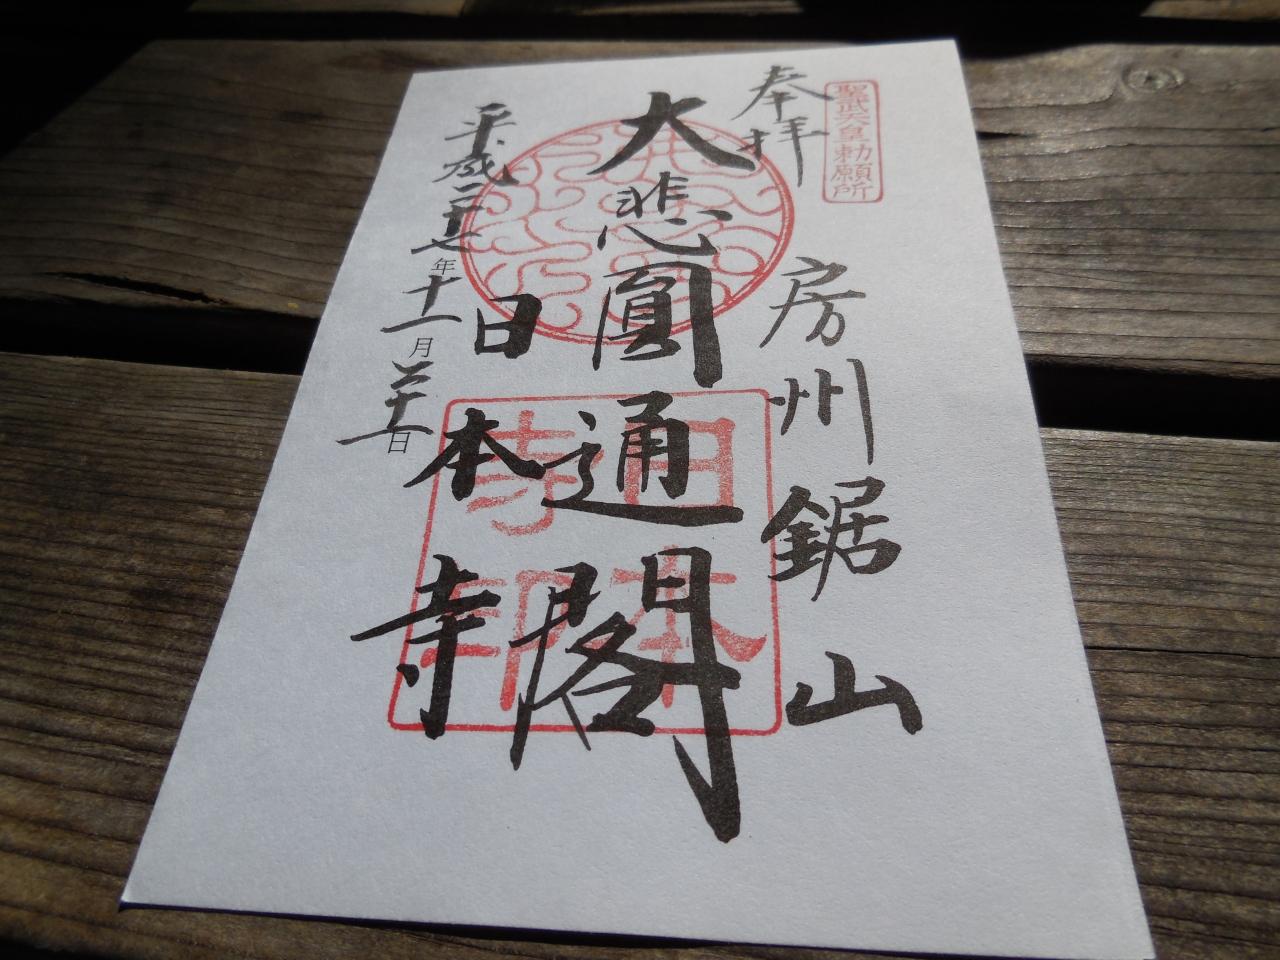 聖武天皇勅願所
奉拝
房州鋸山
大悲圓通閣
日本寺
平成二十七年十一月二十一日
日本寺印